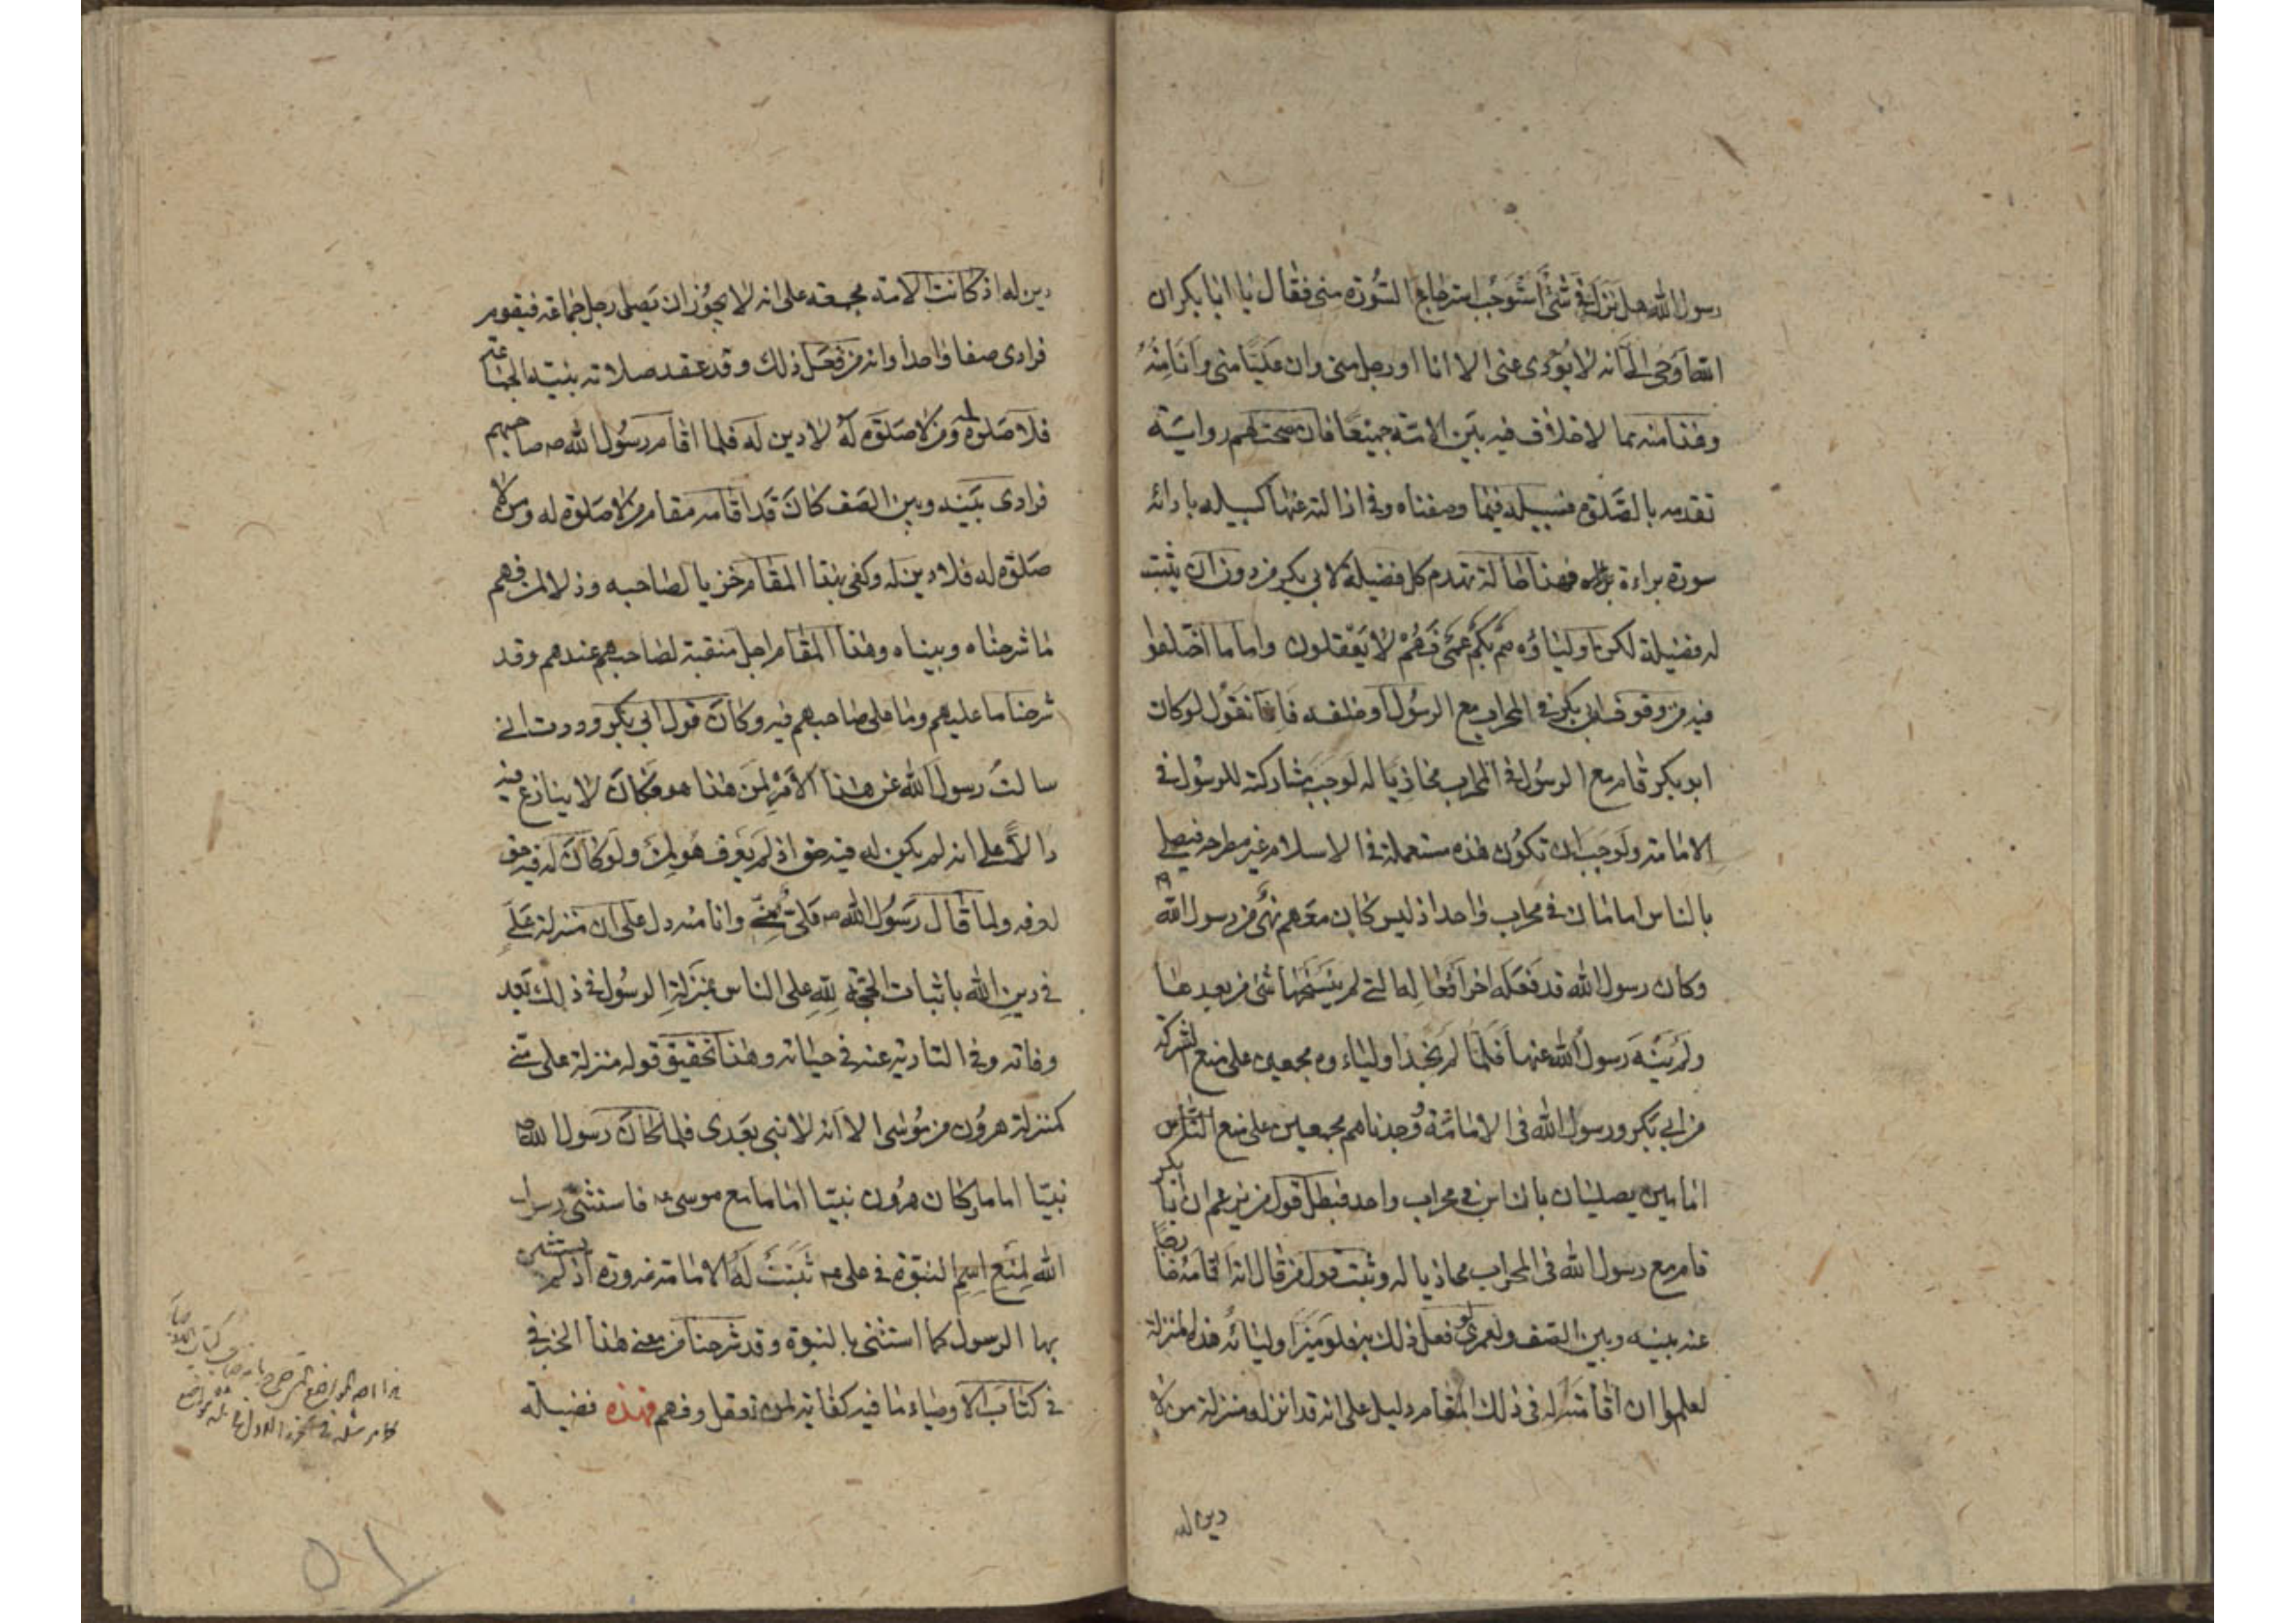 رسول الله هل نزل في شئ استوجب استرجاع السورة مني فقال يا ابا بكر ان
الله اوحى الى انه لا يؤدى عنى الا انا او رجل منى وان عليا منى وانا منه
وهذا منه مما لا خلاف فيه بين الامة جميعا فان صحت لهم رواية
تقدمه بالصلوة فسبيله فيما وصفناه وفي ازالته عنها كسبيله بادائه
سورة براءة فهذا حالة تهدم كل فضيلة لابي بكر من دون ان يثبت
له فضيلة لكن اولياؤه صم بكم عمى فهم لا يعقلون واما ما اختلفوا
فيه من وقوف ابى بكر في المحراب مع الرسول او خلفه فانا نقول لو كان
ابو بكر قام مع الرسول في المحراب محاذيا له لوجب مشاركته للرسول في
الامامة ولوجب ان تكون هذه مستعملة في الاسلام غير مطرحه فيصلى
بالناس امامان في محراب واحد اذ ليس كان معهم نهى من رسول الله
وكان رسول الله قد فعله اخر افعاله التى لم ينسخها شئ من بعدها
ولم ينه رسول الله عنها فلما لم نجد اولياءه مجمعين على منع الشركة
من ابي بكر ورسول الله فى الامامة وجدناهم مجمعين على منع الناس
امامين يصليان بالناس في محراب واحد فبطل قول من يزعم ان ابا بكر
قام مع رسول الله فى المحراب محاذيا له وثبت قول من قال انه اقامه
عنه بينه وبين الصف ولعمرى لو فعل ذلك به فلو ميز اولياؤه هذه المنزلة
لعلموا ان اقامته له فى ذلك المقام دليل على انه قد انزله منزلة من لا
دين له
دين له اذ كانت الامة مجمعة على انه لا يجوز ان يصلى رجل جماعة فيقوم
فرادى صفا واحدا وانه من فعل ذلك وقد عقد صلاته بنية الجماعة
فلا صلوة له ومن لا صلوة له لا دين له فلما اقام رسول الله ص صاحبهم
فرادى بينه وبين الصف كان قد اقامه مقام من لا صلوة له ومن لا
صلوة له فلا دين له وكفى بهذا المقام خزيا لصاحبه وذلا لمن فهم
ما شرحناه وبيناه وهذا المقام اجل منقبة لصاحبهم عندهم وقد
شرحنا ما عليهم وما على صاحبهم فيه وكان قول ابي بكر وددت انى
سالت رسول الله عن هذا الامر لمن هذا هو فكان لا ينازع فيه
دالا على انه لم يكن له فيه حق اذ لم يعرف هو لمن ولو كان له فيه حق
لعرفه ولما قال رسول الله ص على منى وانا منه دل على ان منزلة على
في دين الله باثبات الحجة لله على الناس بمنزلة الرسول في ذلك بعد
وفاته وفى التادية عنه في حياته وهذا تحقيق قوله منزلة على منى
كمنزلة هرون من موسى الا انه لا نبى بعدى فلما كان رسول الله ص
نبيا اماما وكان هرون نبيا اماما مع موسى ع فاستثنى رسول
الله لمنع اسم النبوة في على ع ثبتت له الامامة ضرورة اذ لم يستثن
بها الرسول كما استثنى بالنبوة وقد شرحنا من معنى هذا الخبر في
في كتاب الاوصياء ما فيه كفاية لمن تعقل وفهم فهذه فضيلة
٥١